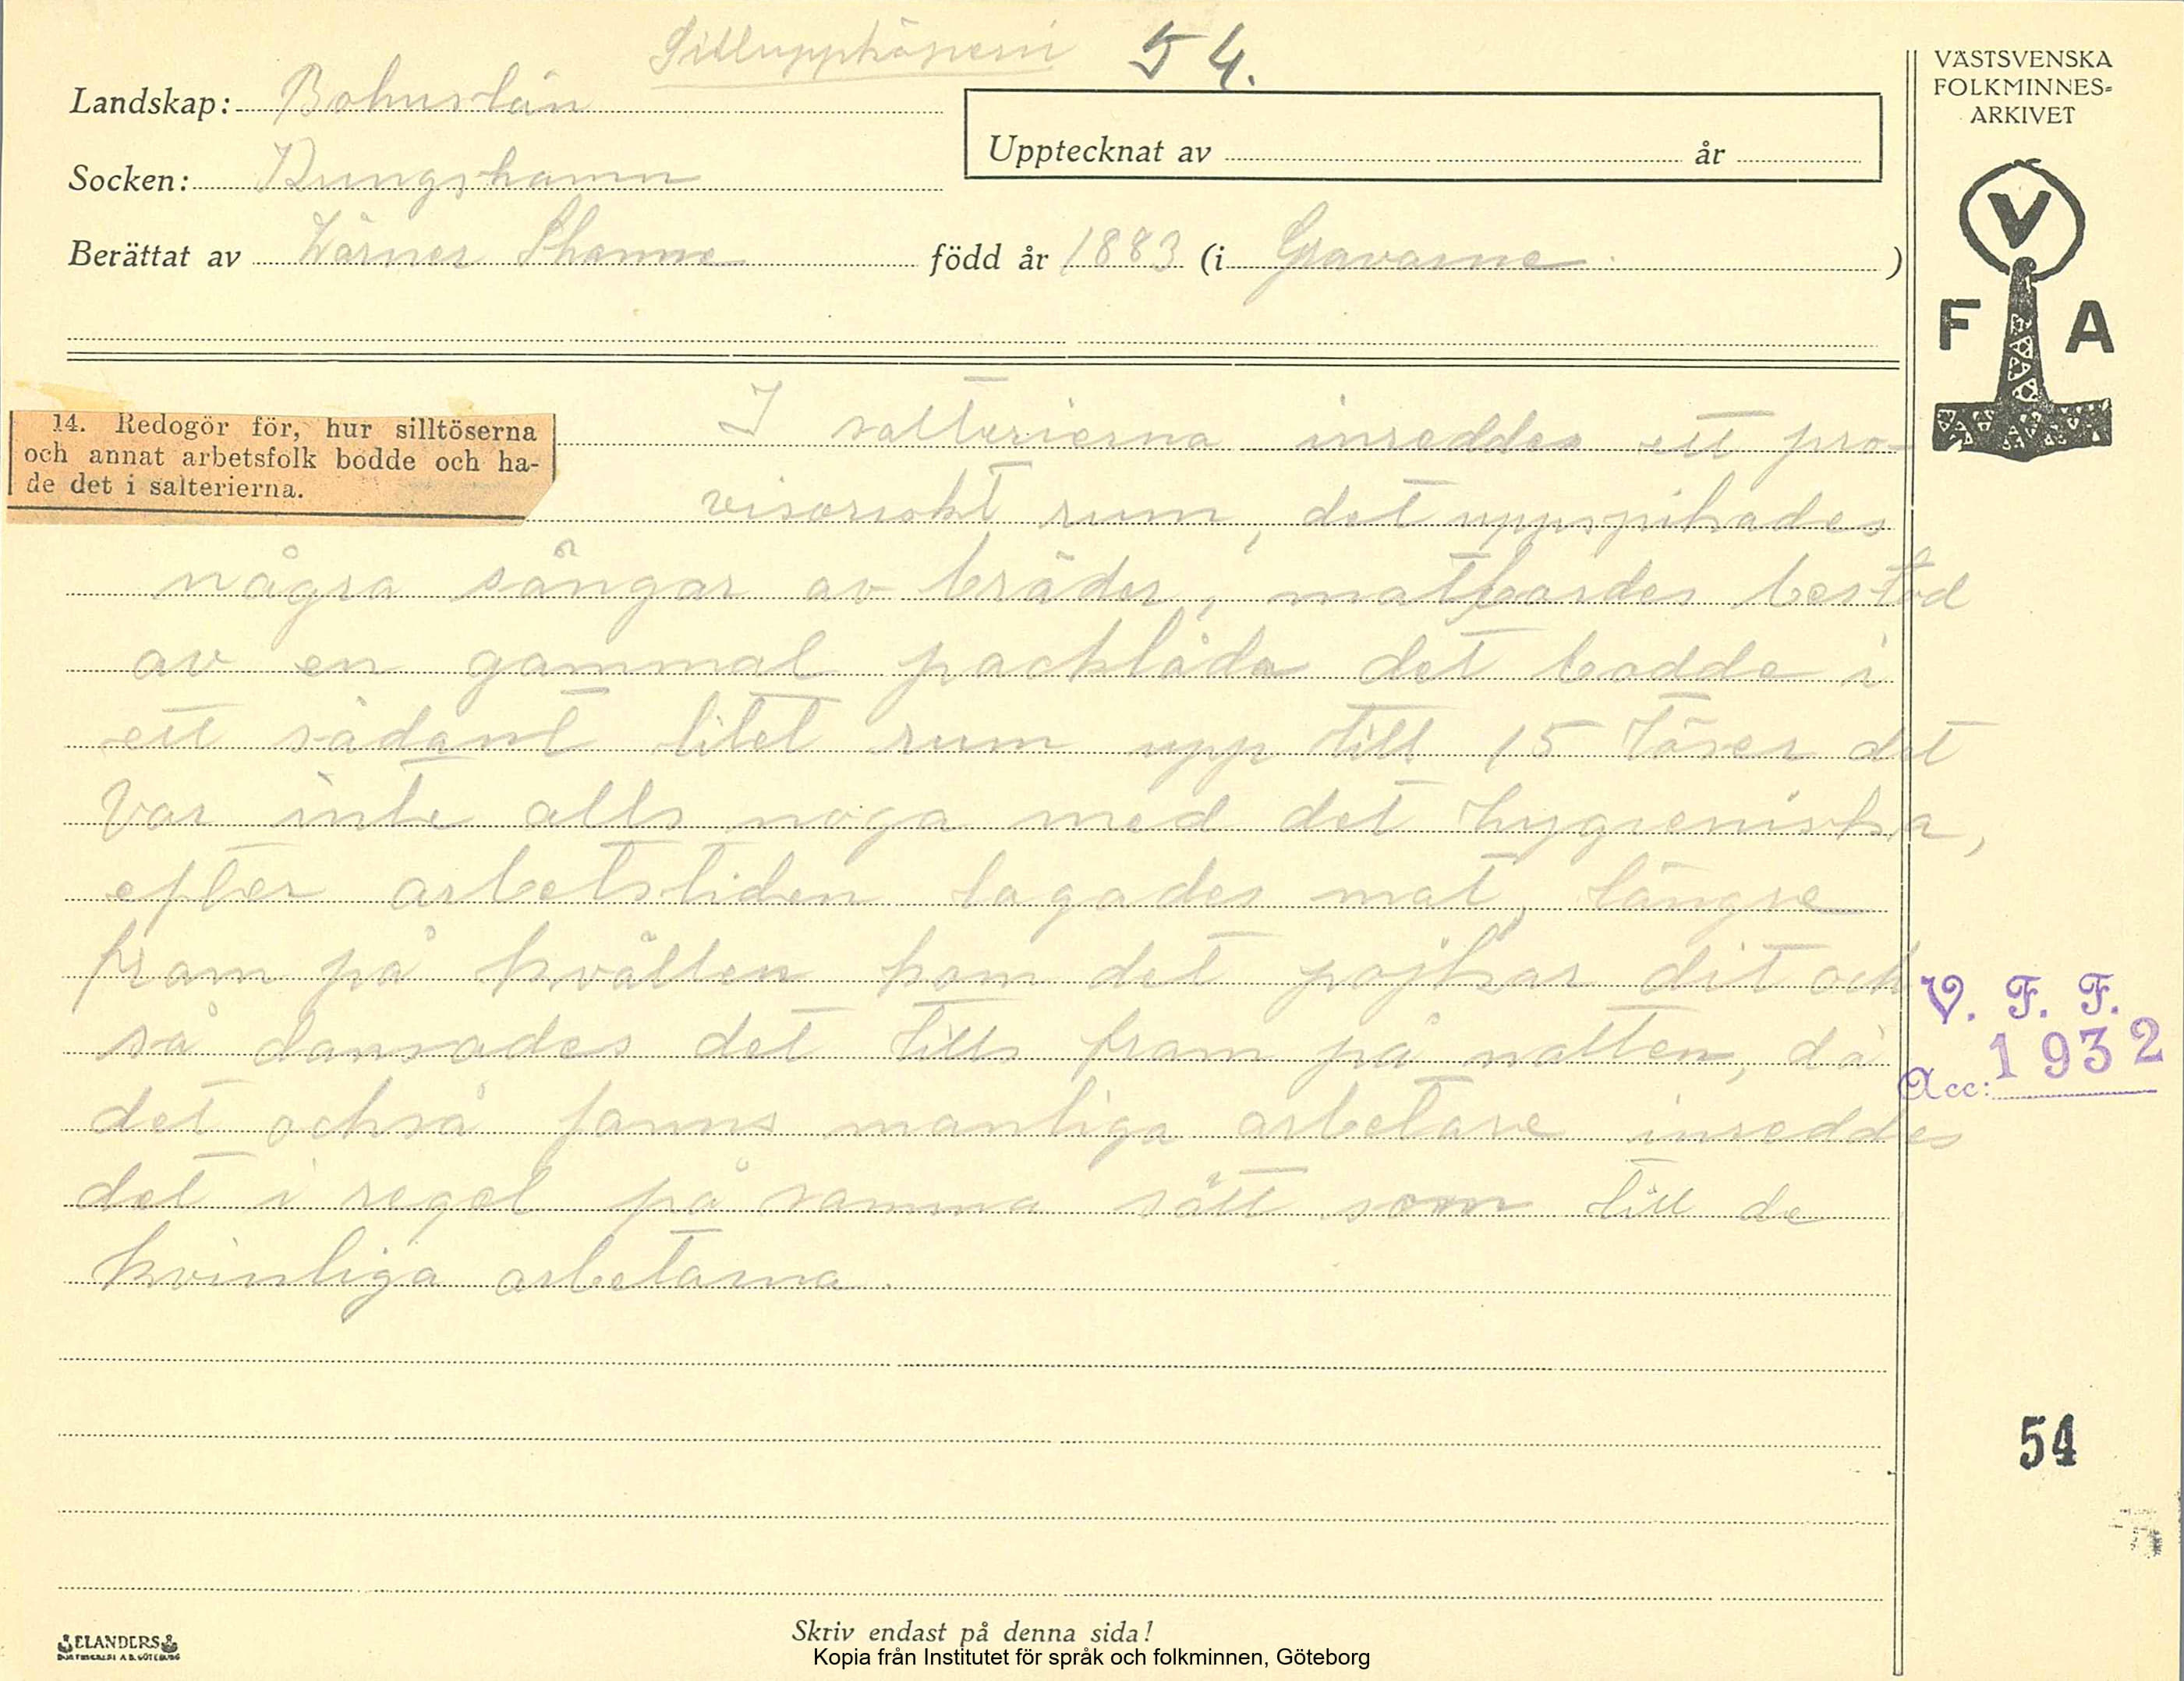 Silluppköperi 54.
Landskap: Bohuslän
Socken: Kungshamn
Upptecknat av år
Berättat av Wärner född år 1883 (i Gravarne )
VÄSTSVENSKA
FOLKMINNES-
ARKIVET
V
F A
14. Redogör för, hur silltöserna
och annat arbetsfolk bodde och ha-
de det i salterierna.
I salterierna inreddes ett pro-
visoriskt rum, det uppspikades
några sängar av bräder, matbordes bestod
av en gammal packlåda det bodde i
ett sådant litet rum upp till 15 Töser det
var inte alls noga med det hygieniska,
efter arbetstiden lagades mat, längre
fram på kvällen kom det pojkar dit och
så dansades det tills fram på natten, då
det också fanns manliga arbetare inreddes
det i regel på samma sätt som till de
kvinliga arbetarna.
V. F. F.
Acc: 1932
54
ELANDERS
Skriv endast på denna sida!
Kopia från Institutet för språk och folkminnen, Göteborg